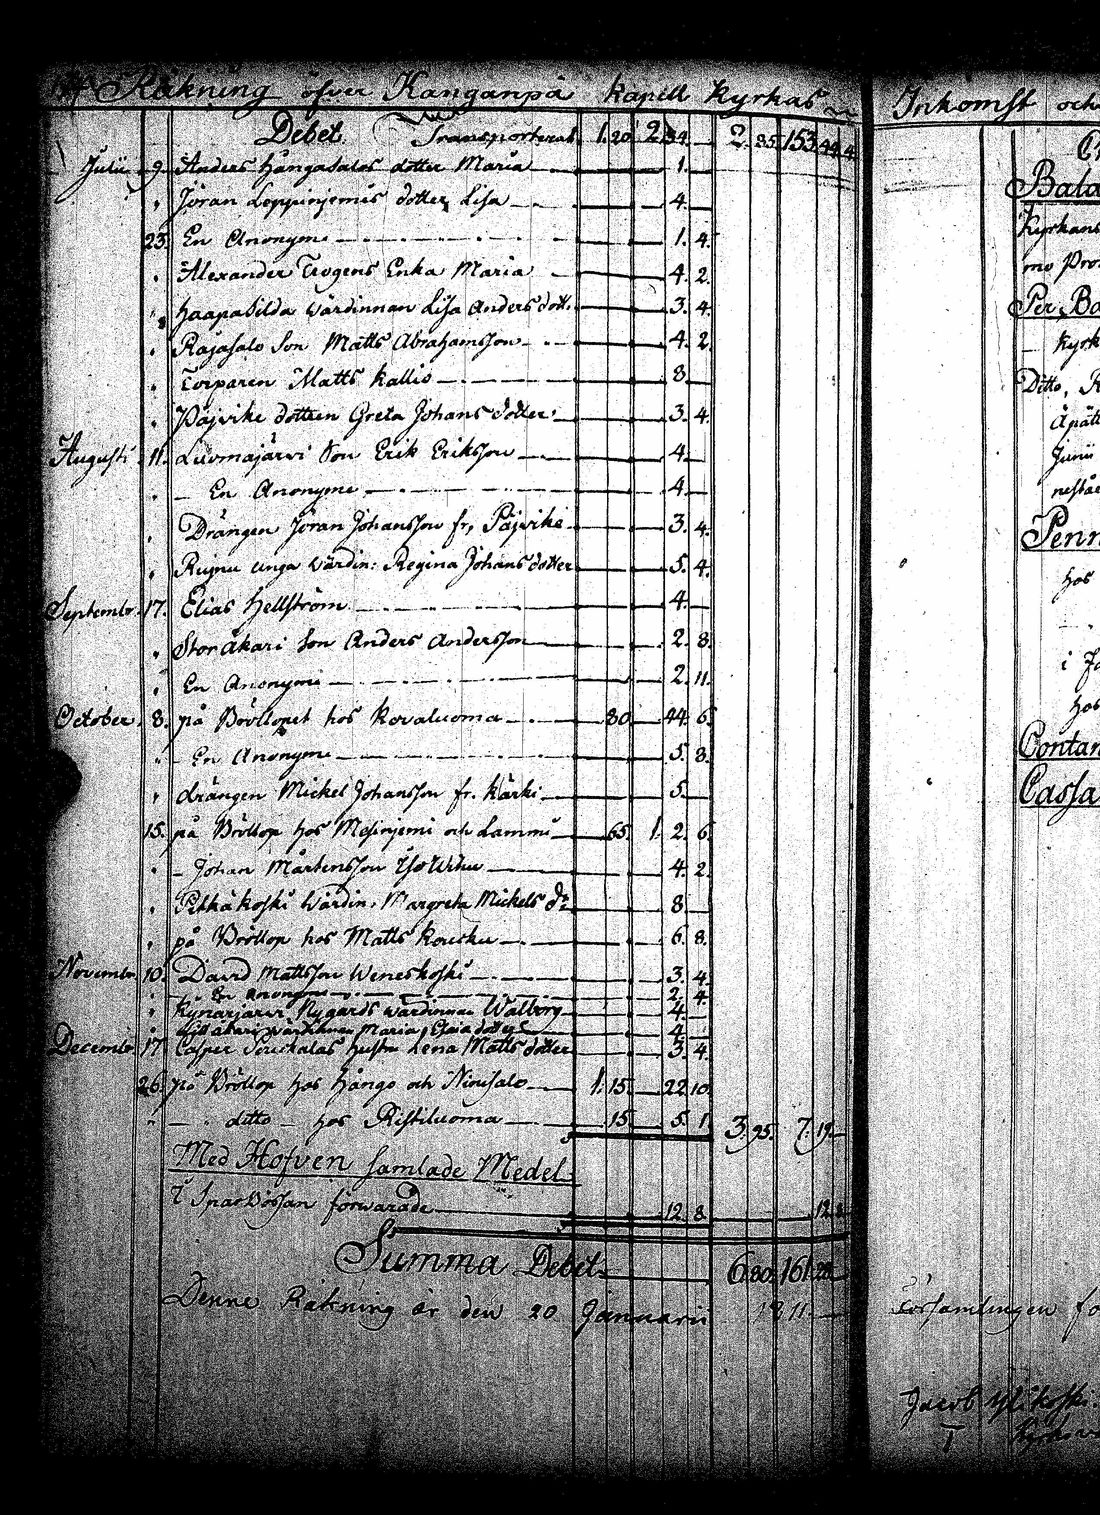 Räkning öfver Kanganpä kapell kyrkas
Debet. Transporterat 1. 20 2. 34. 2. 85. 153. 44. 4
Julii 9. Anders Hångasalos dotter Maria 1.
" Jöran Loppinjemis dotter Lisa 4.
23. En Anonyme 1. 4.
" Alexander Trogens Enka Maria 4. 2
" Haapasilda wärdinnan Lisa Anders dott. 3. 4.
" Rajasalo Son Matts Abrahamsson 4. 2.
" Torparen Matts Kallio 8.
" Päjvike dottren Greta Johans dotter 3. 4.
Augusti 11. Luomajärvi Son Erik Eriksson 4.
" En Anonyme 4.
" Drängen Jöran Johansson fr, Päjvike 3. 4.
" unga wärdin: Regina Johans dotter 5. 4.
Septembr. 17. Elias Hellström 4.
" Storåkari Son Anders Andersson 2. 8
" En Anonyme 2. 11.
October 8. på Bröllopet hos Kovaluoma 80 44. 6
" En Anonyme 5. 8.
" drängen Mickel Johansson fr. Kärki 5.
15. på Bröllop hos och Lammi 65. 1. 2. 6
" Johan Mårtensson 4. 2
" Pitkäkoski wärdin. Margreta Mickels dr 8
" på Bröllop hos Matts Koucku 6. 8.
Novembr. 10. David Mattsson Weneskoski 3. 4
" En Anonyme 2. 4
" Nygårds wärdinnan Walborg 4.
" wärdinnan Maria dotter 4.
Decembr. 17 Casper hustru Lena Matts dotter 3. 4.
26. på Bröllop hos Hångo och Niousalo 1. 15. 22. 10
" ditto hos Ristiluoma 15. 5. 1 3. 95. 7. 19.
Med Håfven samlade Medel
I SparBössan förwarade 12. 8 12. 8
Summa Debet 6. 80. 161. 28
Denne Räkning är den 20 Januarii 1811.
Inkomst och
Bala
Kyrkans
mo Pros
Per, Ba
Kyrk
Ditto, R
Junii
Penn
hos
i Ja
hos
Contan
Cassa
Församlingen fö
Jacob Ylikoski.